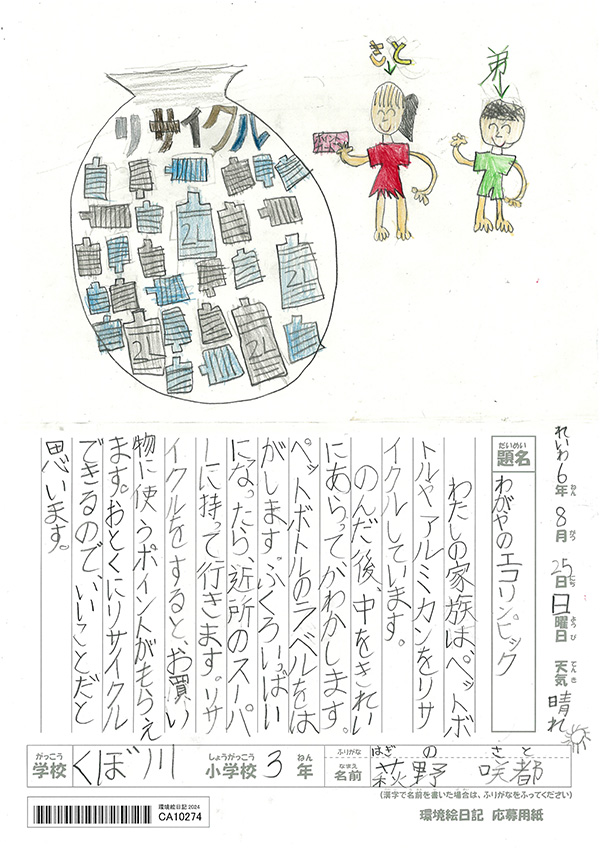 リサイクル
さと
弟
ポイントカード
2L
2L
2L
2L
れいわ6年8月25日日曜日 天気 晴れ
ねん がつ にち ようび てんき
だいめい
題名
わがやのエコリンピック
わたしの家族は、ペットボ
トルやアルミカンをリサ
イクルしています。
のんだ後、中をきれい
にあらってかわかします。
ペットボトルのラベルをは
がします。ふくろいっぱい
になったら、近所のスーパ
ーに持って行きます。リサ
イクルをすると、お買い
物に使うポイントがもらえ
ます。おとくにリサイクル
できるので、いいことだと
思います。
がっこう しょうがっこう ねん
学校 くぼ川 小学校 3 年
ふりがな はぎ の さ と
なまえ
名前 萩野 咲都
(漢字で名前を書いた場合は、ふりがなをふってください)
環境絵日記 2024
CA10274
環境絵日記 応募用紙